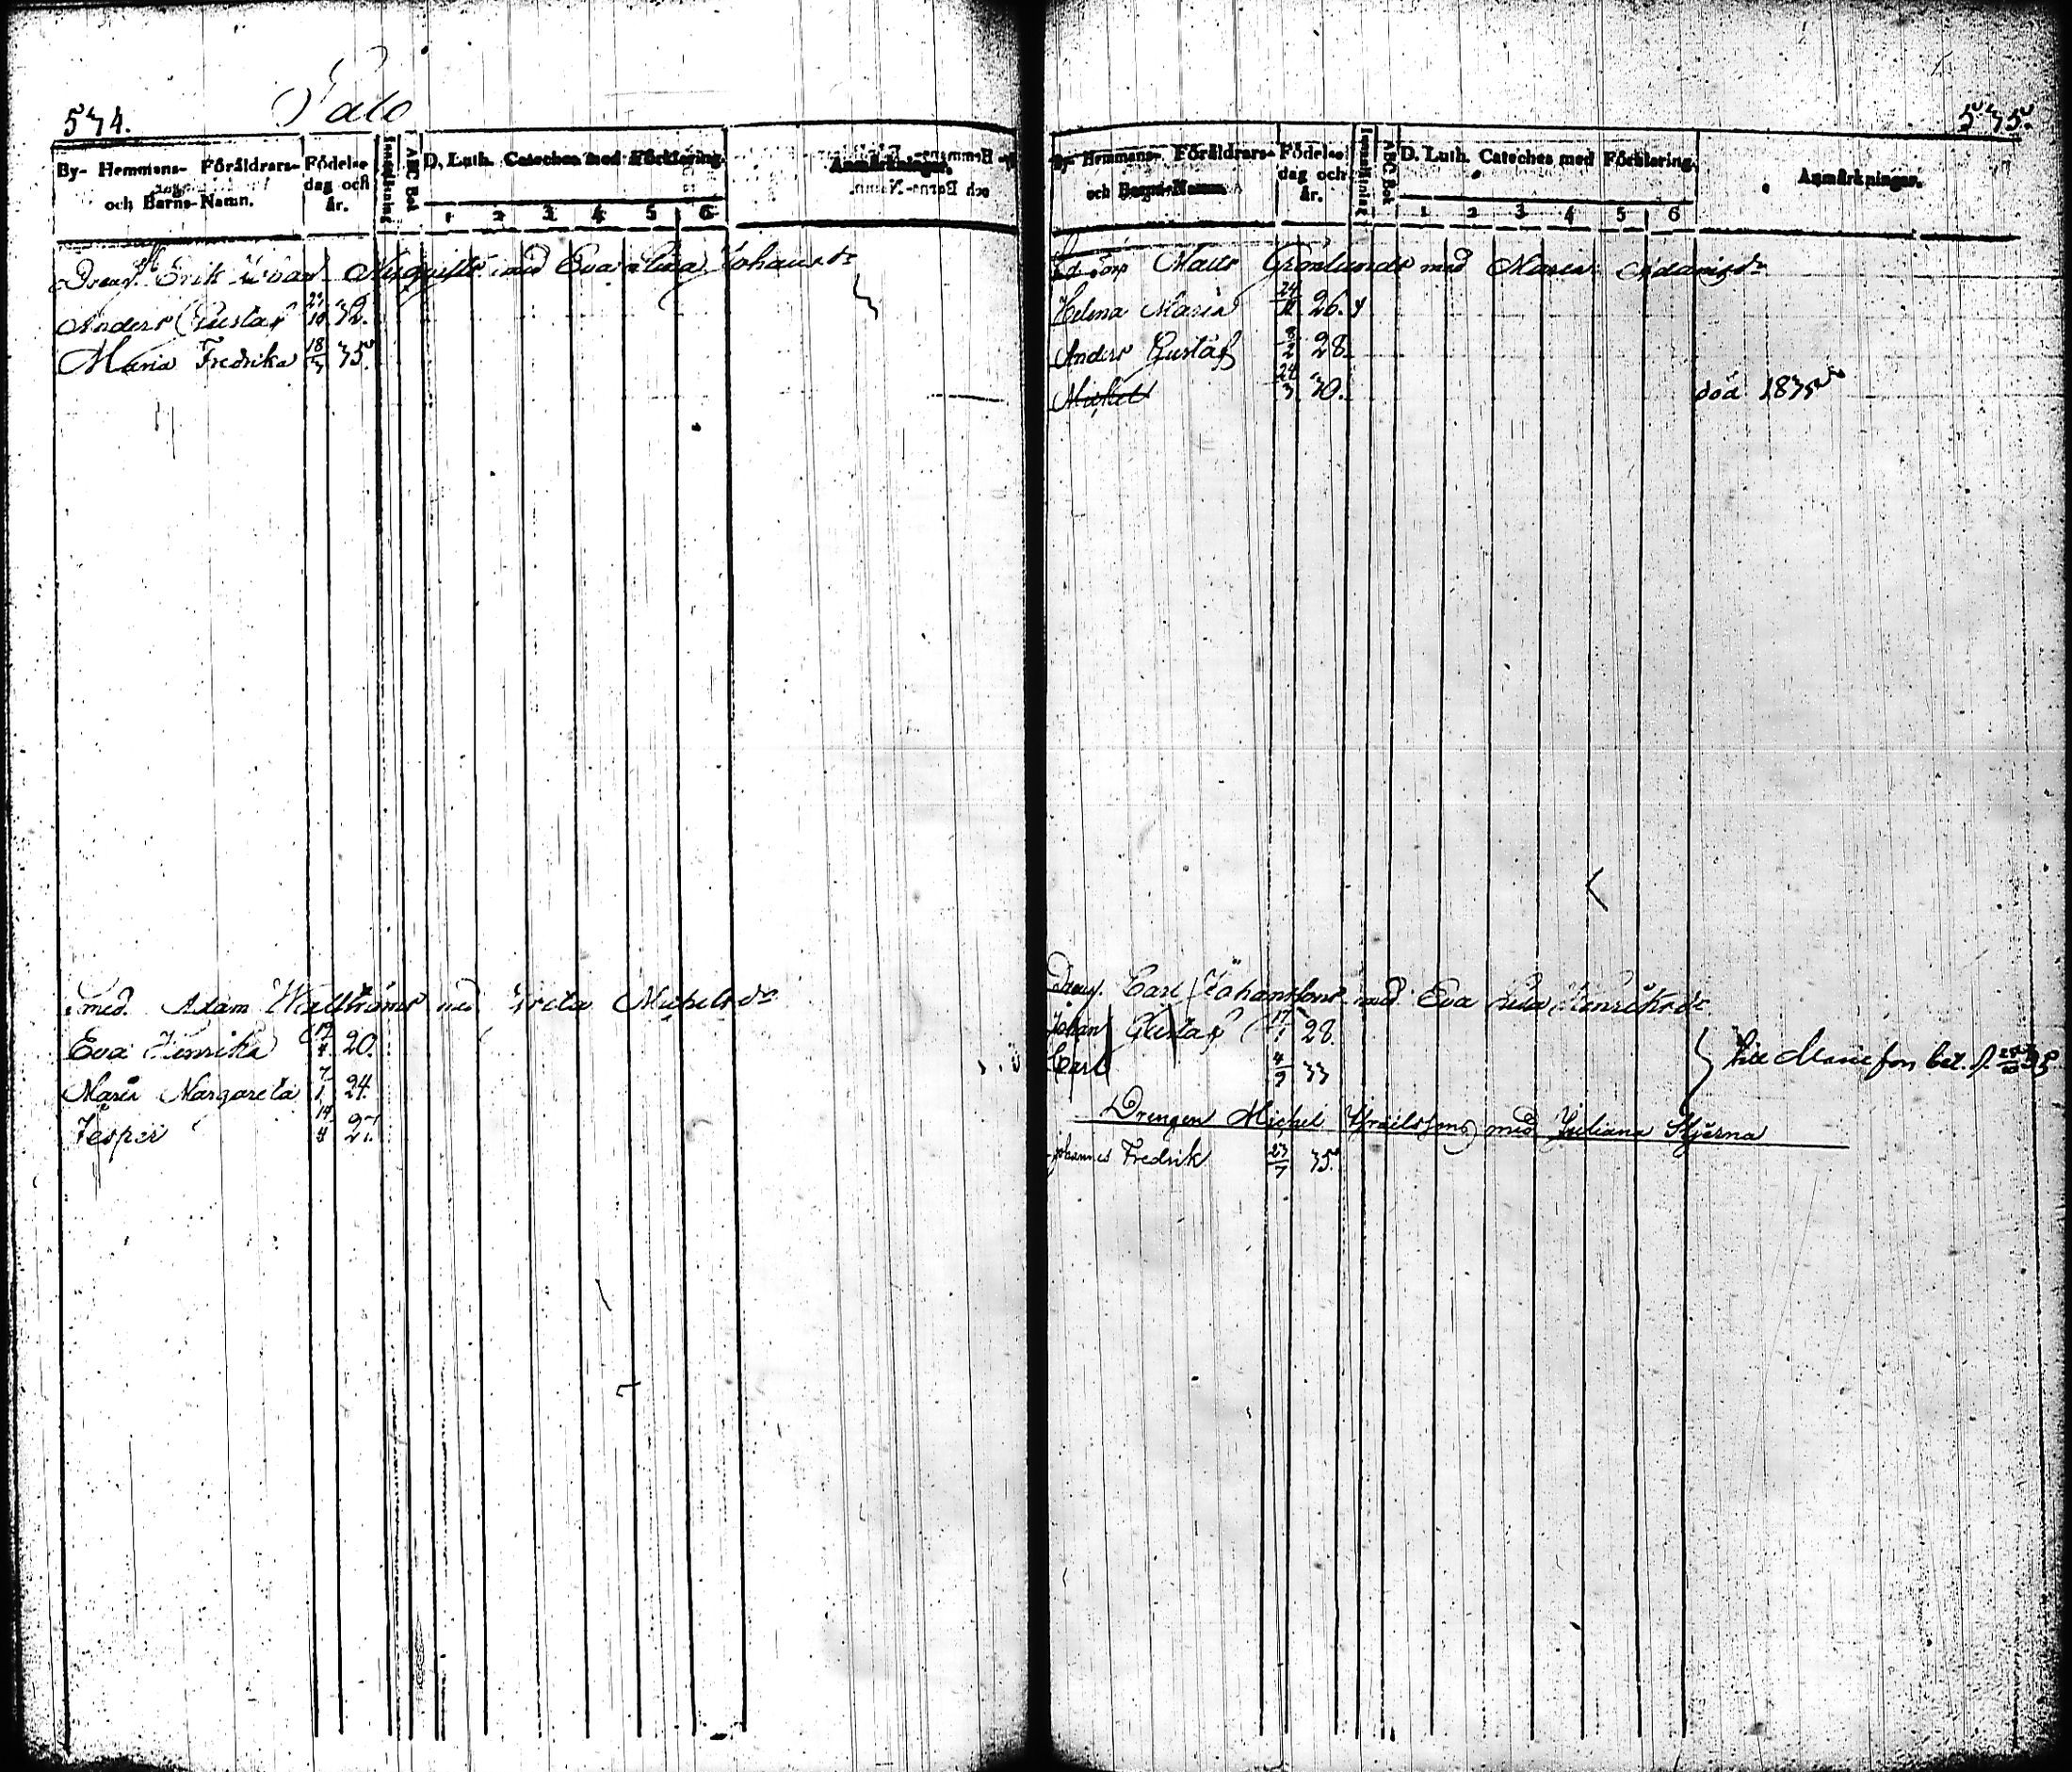 574.
Palo
By- Hemmans- Föräldrars- och Barns-Namn.
Födelse dag och år.
Innanläsning
ABC Bok
D. Luth. Cateches med Förklaring.
1 2 3 4 5 6
Anmärkningar.
Dreng. Erik Nyqvists med Eva Lisa Johansdr
Anders Gustaf 10 32.
Maria Fredrika 18/3 35.
med. Adam Wallströms med Greta Michelsdr
Eva Henrika 19/4 20.
Maria Margareta 7/1 24.
Jesper 14/4 27.
575.
By- Hemmans- Föräldrars- och Barns-Namn.
Födelse dag och år.
Innanläsning
ABC Bok
D. Luth. Cateches med Förklaring.
1 2 3 4 5 6
Anmärkningar.
Torp Matts Grönlunds med Maria Adamsdr
Helena Maria 24/12 26.
Anders Gustaf 8/2 28.
Michel 24/3 30. död 1835
Dreng. Carl Johanssons med Eva Lisa Henriksdr
Johan Gustaf 17/1 28.
Carl 4/9 33
bet. 35.
Drengen Michel Israelssons med Juliana Stjerna
Johannes Fredrik 23/7 35.